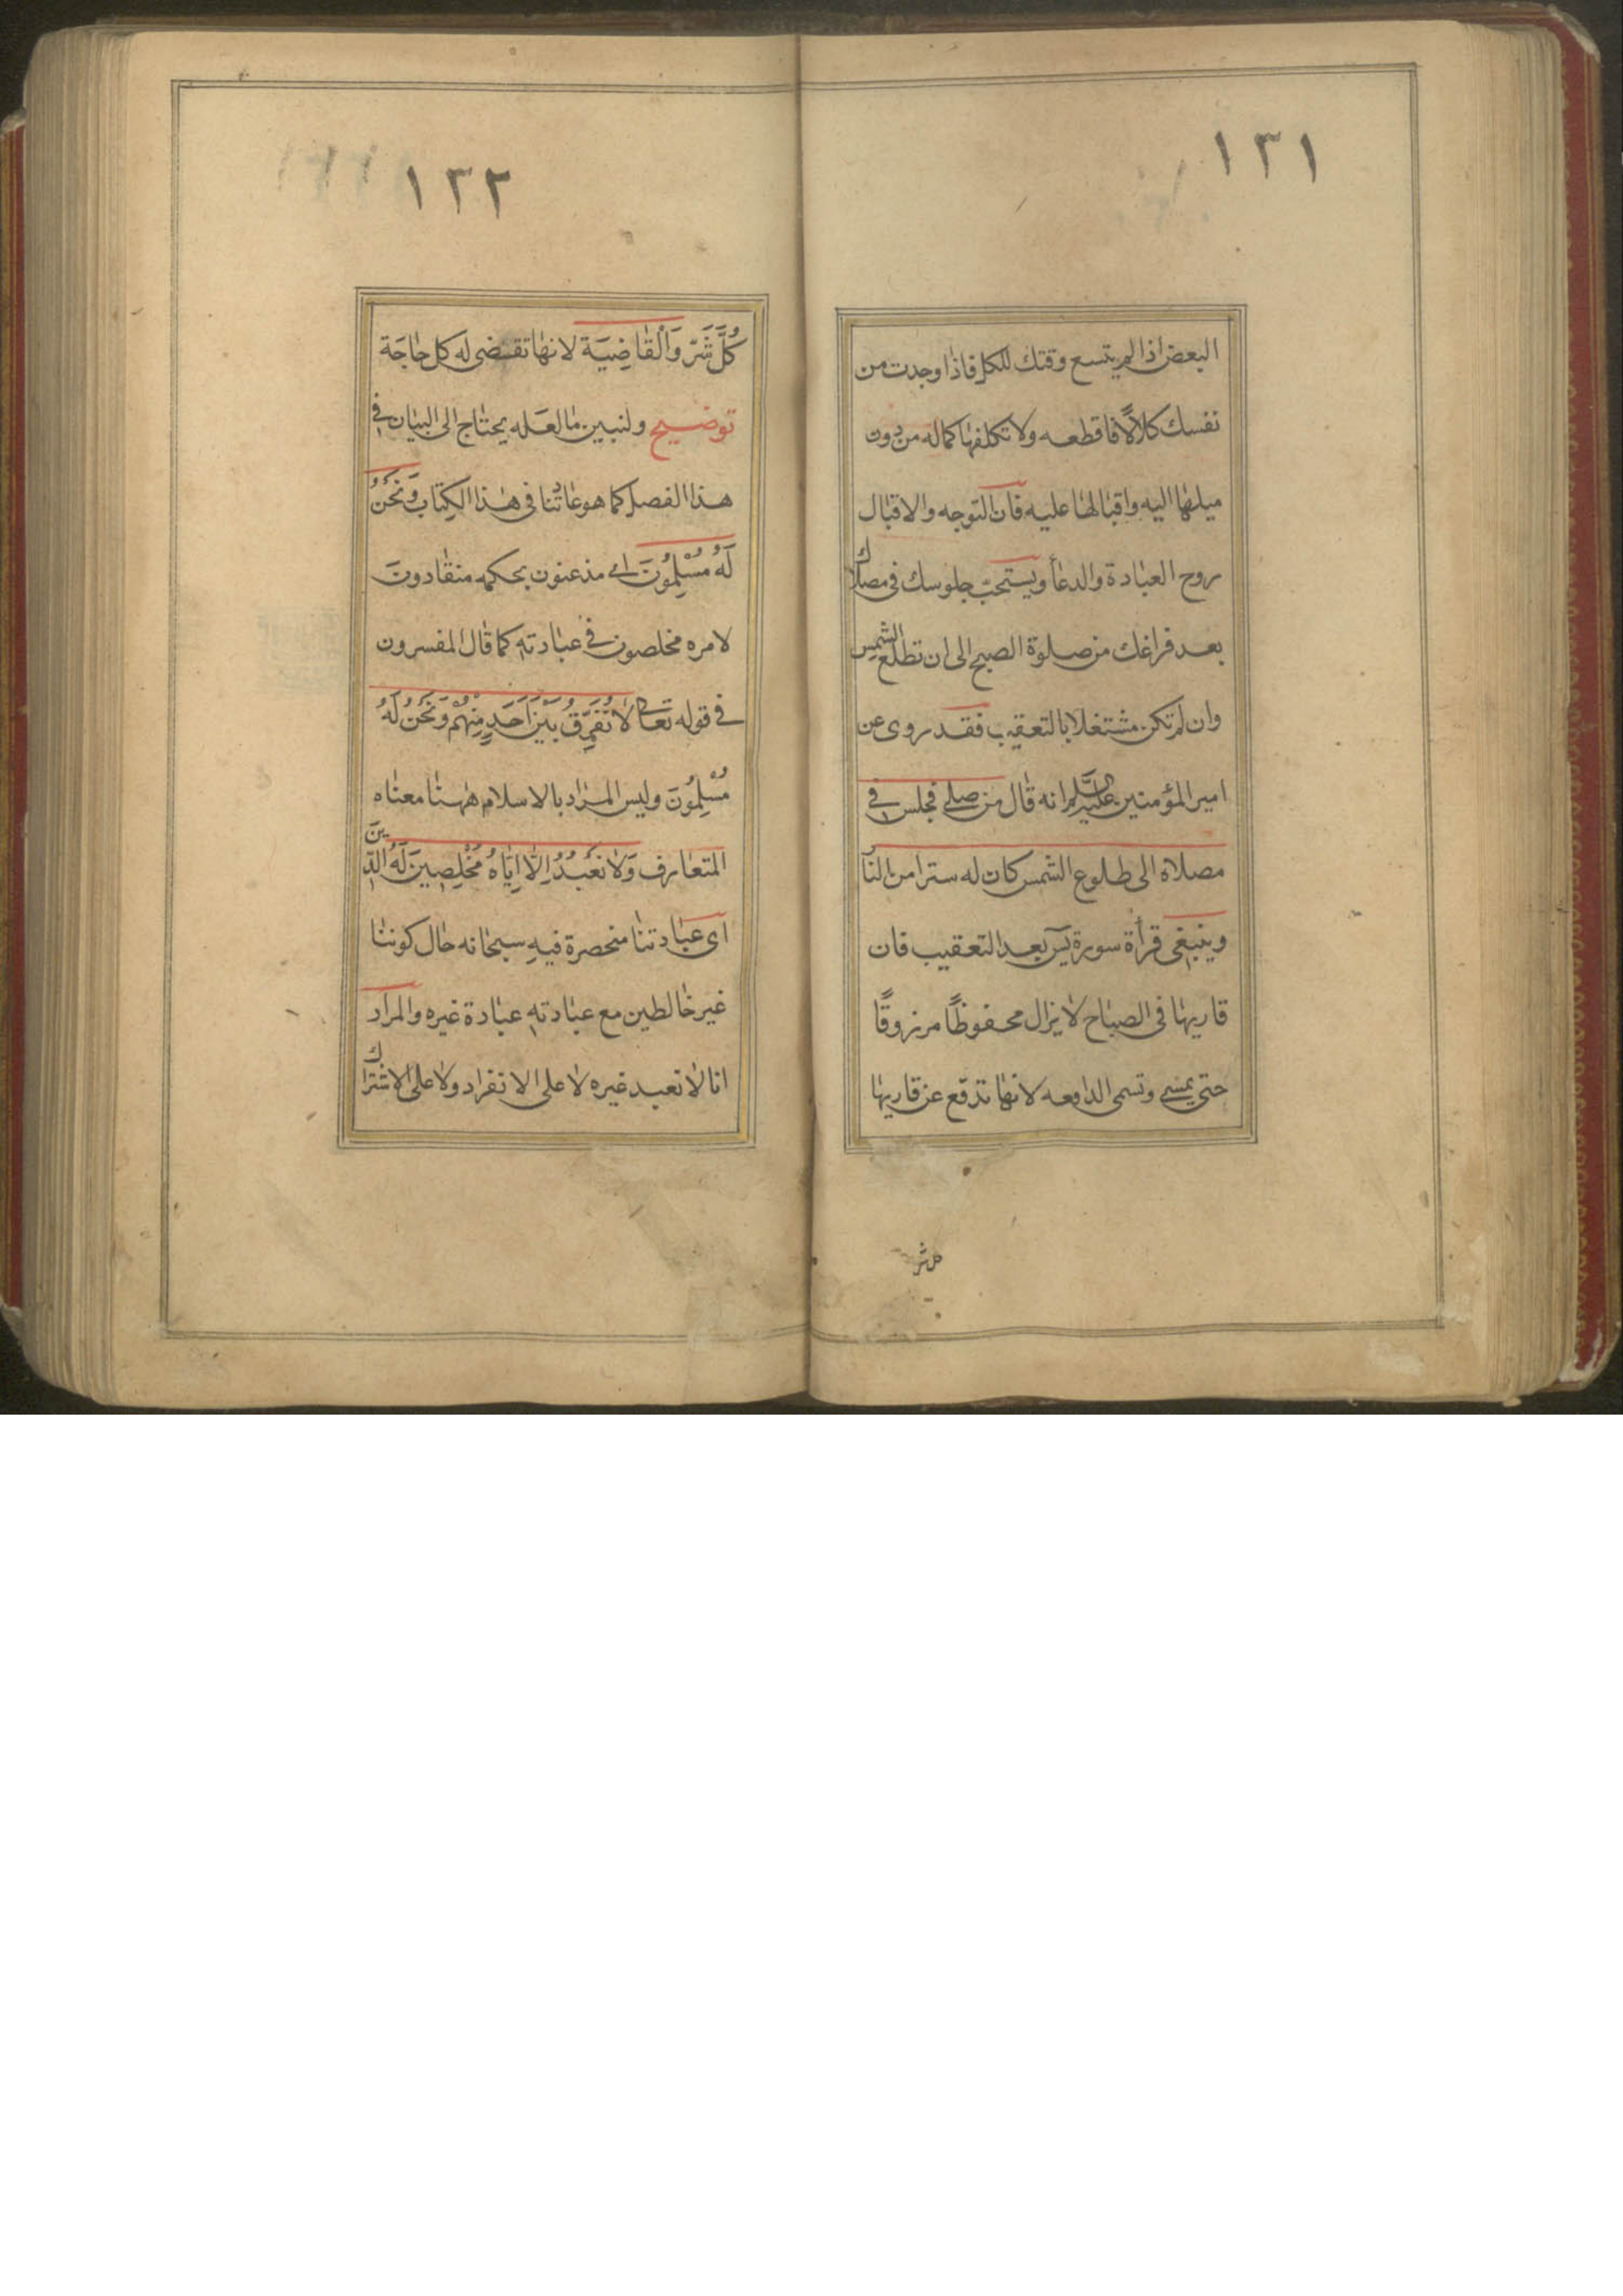 ١٣١
البعض اذا لم يتسع وقتك للكل فاذا وجدت من
نفسك كلالًا فاقطعه ولا تكلفها كماله من دون
ميلها اليه واقبالها عليه فان التوجه والاقبال
روح العبادة والدعأ ويستحبّ جلوسك فى مصلاك
بعد فراغك من صلوة الصبح الى ان تطلع الشمس
وان لم تكن مشتغلا بالتعقيب فقد روى عن
امير المؤمنين عليه السَّلم انه قال من صلى فجلس فى
مصلاه الى طلوع الشمس كان له سترا من النا
وينبغى قرأة سورة يس بعد التعقيب فان
قاريها فى الصباح لا يزال محفوظًا مرزوقًا
حتى يمسى وتسمى الدافعه لانها تدفع عن قاريها
كل شر
١٣٢
كُلَّ شَرّ وَالْقاضِيَة لانها تقضى له كل حاجَة
توضيح ولنبين ما لعَله يحتاج الى البيان فى
هذا الفصل كما هو عادتنا فى هذا الكِتاب وَنَحْنُ
لَهُ مُسْلِمُونَ اى مذعنون بحكمه منقادون
لامره مخلصون فى عبادته كما قال المفسرون
فى قوله تعالى لا نُفَرِّقُ بَيْنَ اَحَدٍ مِنْهُمْ وَنَحْنُ لَهُ
مُسْلِمُونَ وليس المراد بالاسلام ههنا معناه
المتعارف وَلا نَعْبُدُ اِلّا اِيّاهُ مُخْلِصِينَ لَهُ الدّينَ
اى عبادتنا منحصرة فيه سبحانه حال كوننا
غير خالطين مع عبادته عبادة غيره والمراد
انا لا نعبد غيره لا على الانفراد ولا على الاشتراك